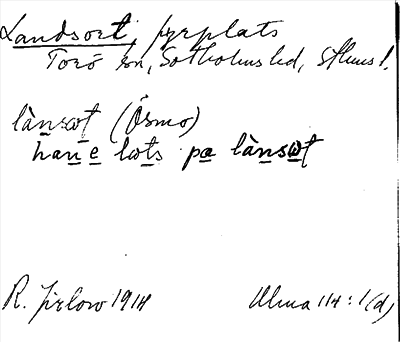 Landsort, fyrplats
Torö sn, Sotholms hd, Sthms l.
lànsωt (Ösmo)
han e lωts pa lànsωt
R. Jirlow 1914 Ulma 114:1(d)